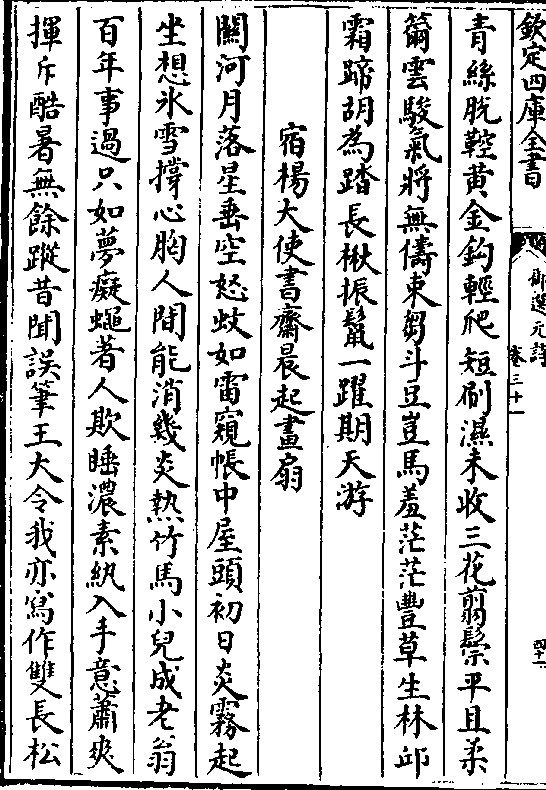 欽定四庫全書
御選元詩
卷三十一
青絲脫鞚黄金鈎輕爬短刷濕未收三花翦鬃平且柔
籋雲駿氣將無儔束芻斗豆豈馬羞茫茫豐草生林邱
霜蹄胡為踏長楸振鬣一躍期天游
宿楊大使書齋晨起畫扇
關河月落星垂空怒蚊如雷窺帳中屋頭初日炎霧起
坐想氷雪撐心胸人間能消幾炎熱竹馬小兒成老翁
百年事過只如夢癡蠅著人欺睡濃素紈入手意蕭爽
揮斥酷暑無餘蹤昔聞誤筆王大令我亦寫作雙長松